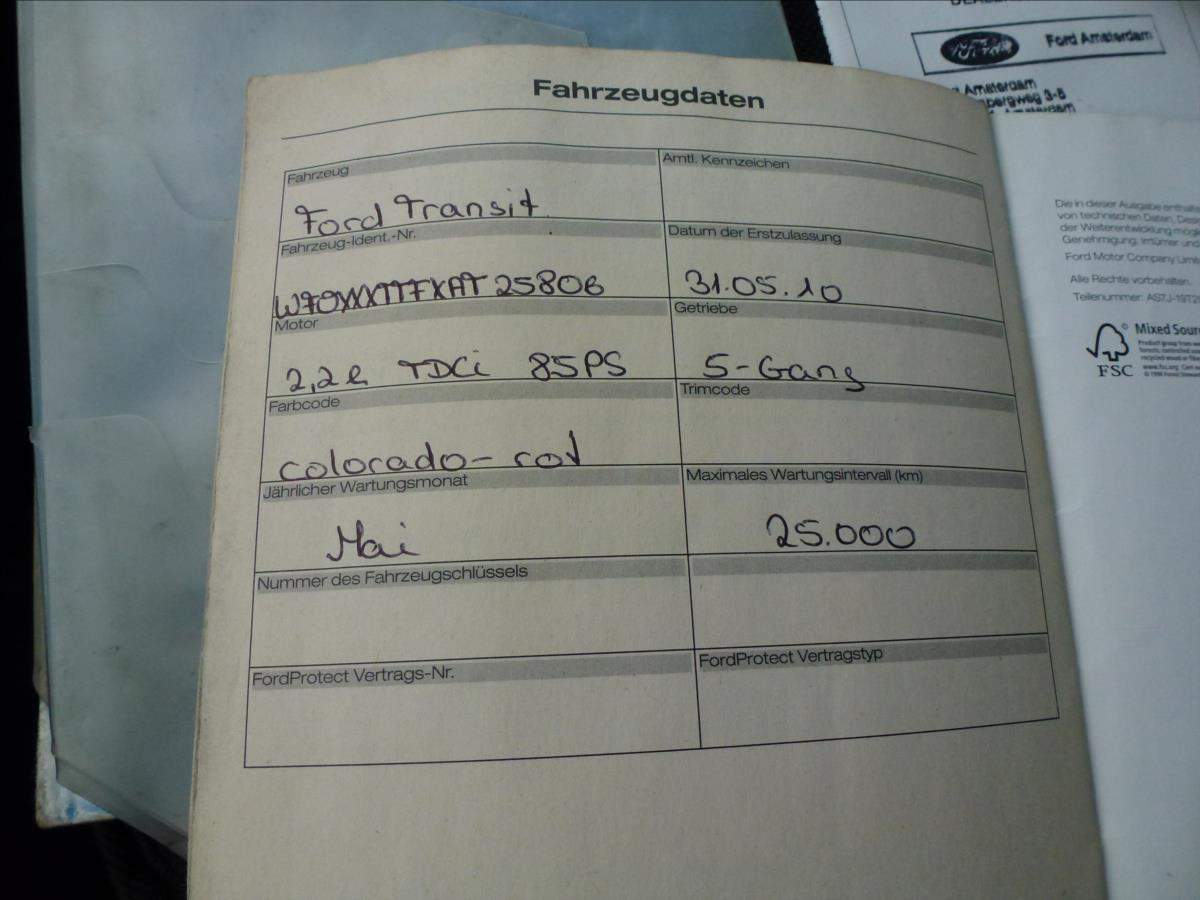 Fahrzeugdaten
Fahrzeug
Amtl. Kennzeichen
Ford Transit
Fahrzeug-Ident.-Nr.
Datum der Erstzulassung
WF0XXXTTFXAT25806
31.05.10
Motor
Getriebe
2,2l TDCi 85PS
5-Gang
Farbcode
Trimcode
colorado-rot
Jährlicher Wartungsmonat
Maximales Wartungsintervall (km)
Mai
25.000
Nummer des Fahrzeugschlüssels
FordProtect Vertrags-Nr.
FordProtect Vertragstyp
Ford
Ford Amsterdam
Amsterdam
3-5
Die in dieser Ausgabe
von technischen Daten,
der Weiterentwicklung
Genehmigung, Irrtümer
Ford Motor Company
Alle Rechte vorbehalten.
Teilenummer:
FSC
Mixed
Product group from